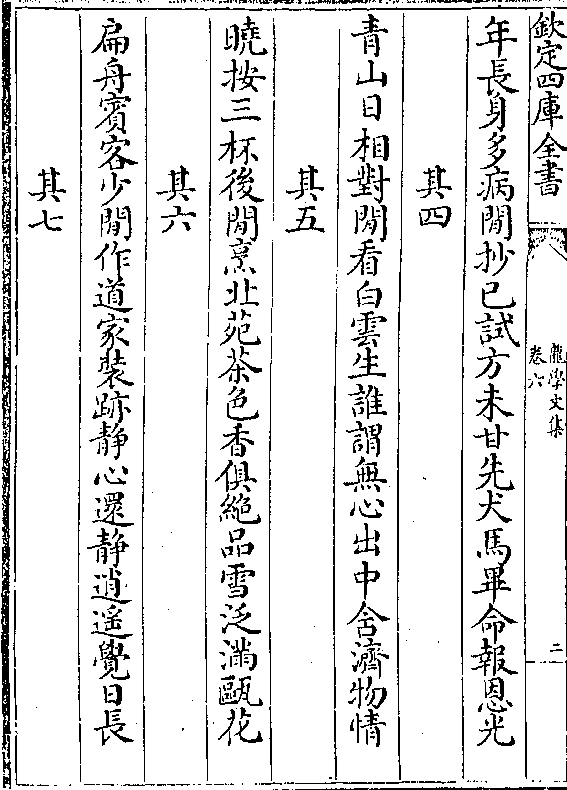 欽定四庫全書
龍學文集
卷六
二
年長身多病閒抄已試方未甘先犬馬畢命報恩光
其四
青山日相對閒看白雲生誰謂無心出中含濟物情
其五
曉按三杯後閒烹北苑茶色香俱絶品雪泛滿甌花
其六
扁舟賓客少閒作道家裝跡静心還静逍遥覺日長
其七